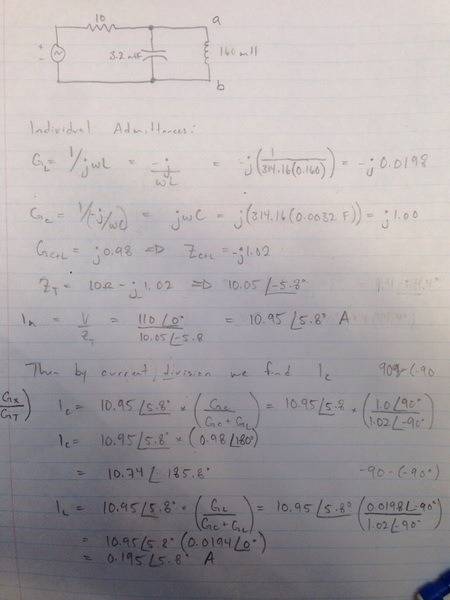 10
a
+
-
3.2 mF
160 mH
b
Individual Admittances:
G_L = 1/jwL = -j/wL = -j(1/314.16(0.160)) = -j0.0198
G_C = 1/(-j/wC) = jwC = j(314.16(0.0032 F)) = j1.00
G_C+L = j0.98 => Z_C+L = -j1.02
Z_T = 10Ω - j1.02 => 10.05 ∠-5.8°
= V/Z_T = 110∠0°/10.05∠-5.8 = 10.95 ∠5.8° A
Then by current division we find I_C 90°-(-90
G_x/G_T) I_C = 10.95∠5.8° × (G_C/G_C+G_L) = 10.95∠5.8 × (1.0∠90°/1.02∠-90°)
I_C = 10.95∠5.8° × (0.98∠180°)
= 10.74∠185.8° -90-(-90°)
I_L = 10.95∠5.8° × (G_L/G_C+G_L) = 10.95∠5.8° (0.0198∠-90°/1.02∠-90°)
= 10.95∠5.8° (0.0194∠0°)
= 0.195∠5.8° A